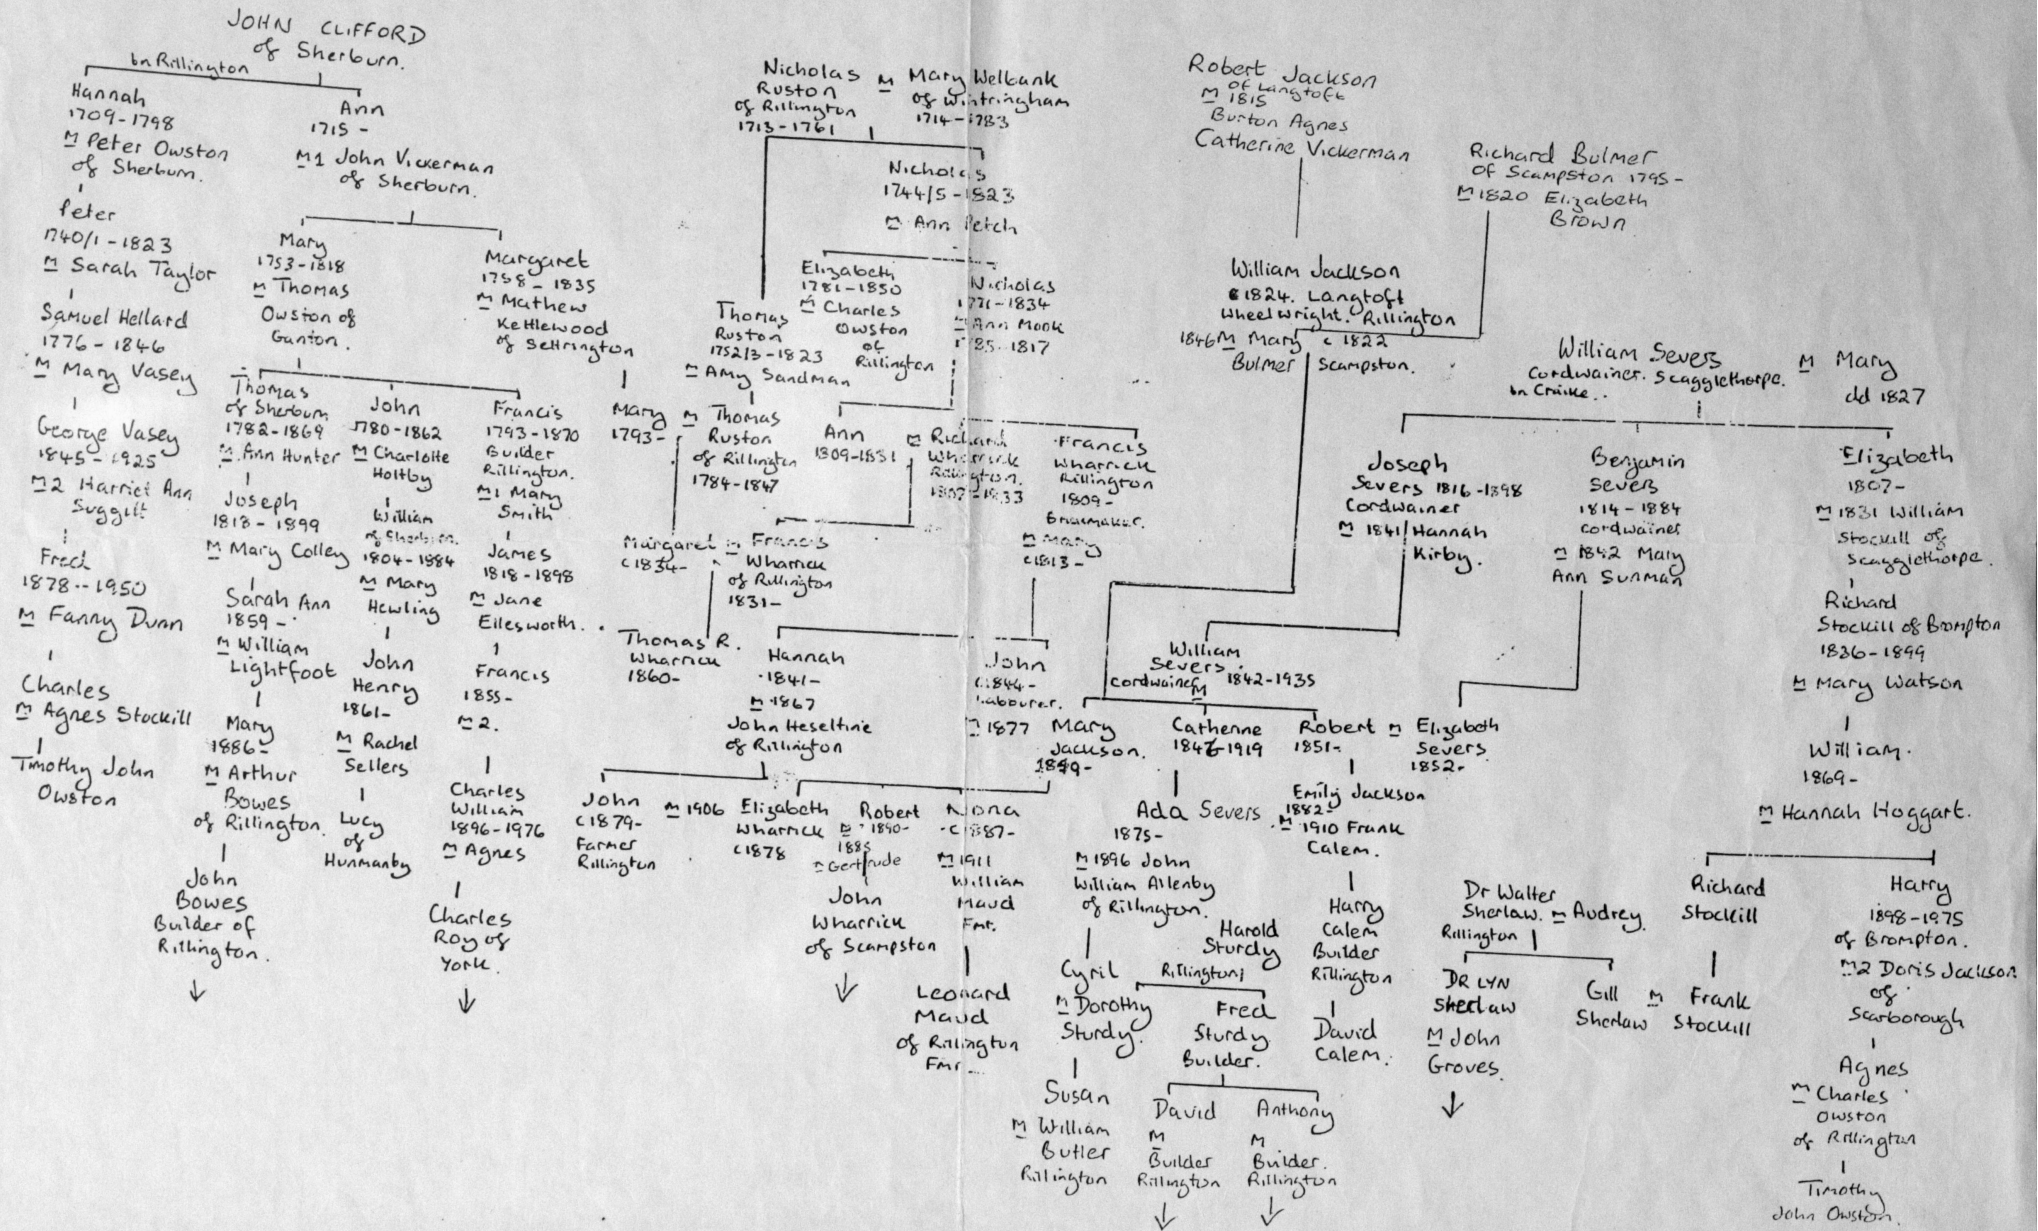 JOHN CLIFFORD
of Sherburn.
bn Rillington
Hannah
1709-1798
M Peter Owston
of Sherburn.
Peter
1740/1-1823
M Sarah Taylor
Samuel Hellard
1776-1846
M Mary Vasey
George Vasey
1845-1925
M2 Harriet Ann
Suggitt
Fred
1878--1950
M Fanny Dunn
Charles
M Agnes Stockill
Timothy John
Owston
Ann
1715-
M1 John Vickerman
of Sherburn.
Mary
1753-1818
M Thomas
Owston of
Ganton.
Thomas
of Sherburn
1782-1869
M Ann Hunter
Joseph
1818-1899
M Mary Colley
Sarah Ann
1859-
M William
Lightfoot
Mary
1886-
M Arthur
Bowes
of Rillington.
John
Bowes
Builder of
Rillington.
John
1780-1862
M Charlotte
Holtby
William
of Sherburn.
1804-1884
M Mary
Hewling
John
Henry
1861-
M Rachel
Sellers
Lucy
of
Hunmanby
Francis
1793-1870
Builder
Rillington.
M1 Mary
Smith
James
1818-1898
M Jane
Ellesworth.
Francis
1855-
M2.
Charles
William
1896-1976
M Agnes
Charles
Roy of
York.
Margaret
1758-1835
M Mathew
Kettlewood
of Settrington
Mary
1793-
Nicholas
Ruston
of Rillington
1713-1761
M Mary Welbank
of Wintringham
1714-1783
Nicholas
1744/5-1823
M Ann Petch
Thomas
Ruston
1752/3-1823
M Amy Sandman
Elizabeth
1781-1850
M Charles
Owston
of
Rillington
Nicholas
1771-1834
M Ann Monk
1785-1817
M Thomas
Ruston
of Rillington
1784-1847
Ann
1809-1831
M Richard
Wharrick
Rillington.
1807-1833
Francis
Wharrick
Rillington
1809-
Shoemaker.
M Mary
c1813-
Margaret
c1834-
M Francis
Wharrick
of Rillington
1831-
Thomas R.
Wharrick
1860-
Hannah
1841-
M 1867
John Heseltine
of Rillington
John
c1844-
Labourer.
M 1877
Mary
Jackson.
John
c1879-
Farmer
Rillington
M 1906
Elizabeth
Wharrick
c1878
Robert
M 1890-
1885
M Gertrude
John
Wharrick
of Scampston
Nona
c1887-
M 1911
William
Maud
Fmr.
Leonard
Maud
of Rillington
Fmr.
Robert Jackson
of Langtoft
M 1815
Burton Agnes
Catherine Vickerman
Richard Bulmer
of Scampston 1795-
M 1820 Elizabeth
Brown
William Jackson
c1824. Langtoft
Wheelwright. Rillington
1846 M Mary c1822
Bulmer Scampston.
William Severs
Cordwainer. Scagglethorpe.
bn Craike..
M Mary
dd 1827
Joseph
Severs 1816-1898
Cordwainer
M 1841/Hannah
Kirby.
Benjamin
Severs
1814-1884
cordwainer
M 1842 Mary
Ann Sunman
Elizabeth
1807-
M 1831 William
Stockill of
Scagglethorpe.
Richard
Stockill of Brompton
1836-1899
M Mary Watson
William.
1869-
M Hannah Hoggart.
William
Severs
Cordwainer 1842-1935
M
Catherine
1846-1919
Robert
1851-
M Elizabeth
Severs
1852-
Ada Severs
1875-
M 1896 John
William Allenby
of Rillington.
Emily Jackson
1882-
M 1910 Frank
Calem.
Harry
Calem
Builder
Rillington
David
Calem.
Cyril
M Dorothy
Sturdy.
Susan
M William
Butler
Rillington
Harold
Sturdy
Rillington
Fred
Sturdy
Builder.
David
M
Builder
Rillington
Anthony
M
Builder.
Rillington
Dr Walter
Sherlaw.
Rillington
M Audrey.
DR LYN
Sherlaw
M John
Groves.
Gill
Sherlaw
M Frank
Stockill
Richard
Stockill
Harry
1898-1975
of Brompton.
M2 Doris Jackson
of
Scarborough
Agnes
M Charles
Owston
of Rillington
Timothy
John Owston.